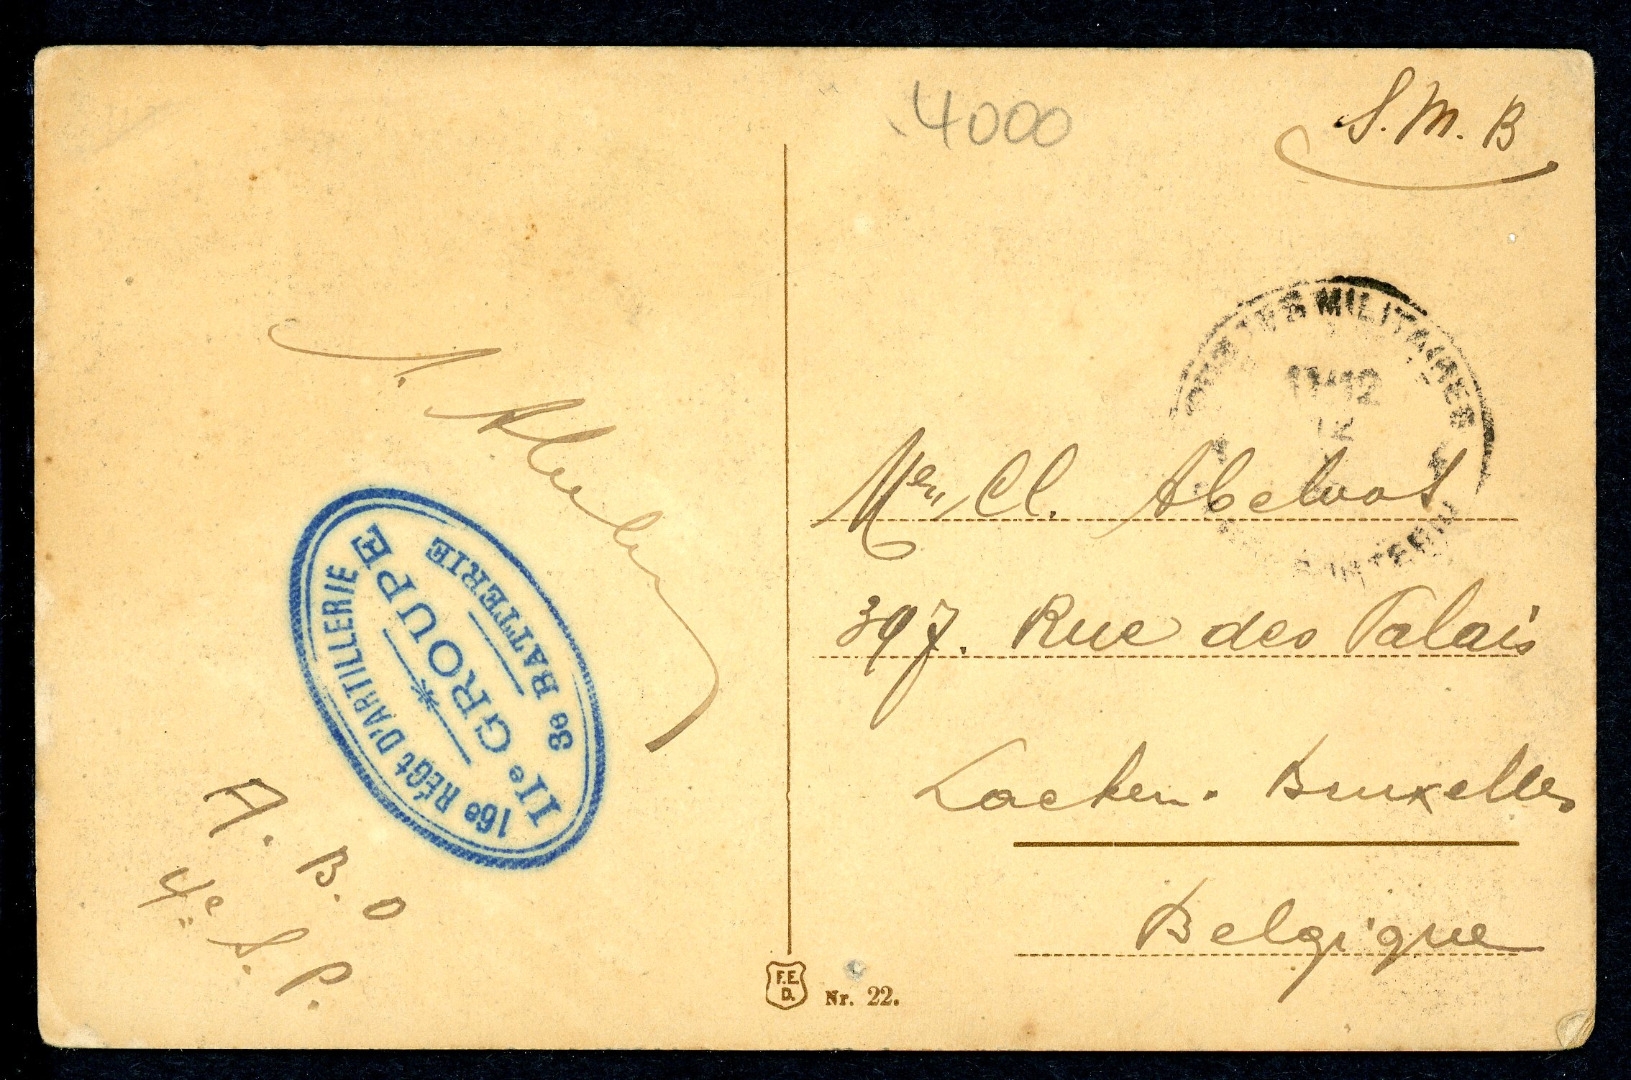 4000
S. M. B
POSTES MILITAIRES
11-12
Mr Cl. Abeloos
397. Rue des Palais
Laeken. Bruxelles
Belgique
16e RÉGt D'ARTILLERIE
IIe GROUPE
BATTERIE
A. B. O
4e S. P.
F.E.
D.
Nr. 22.